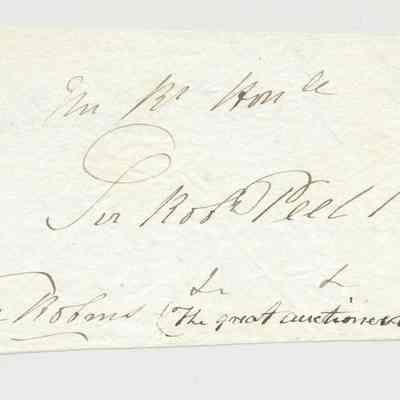 The Rt Honble
Sir Robt Peel
& &
Robins (The great auctioneer